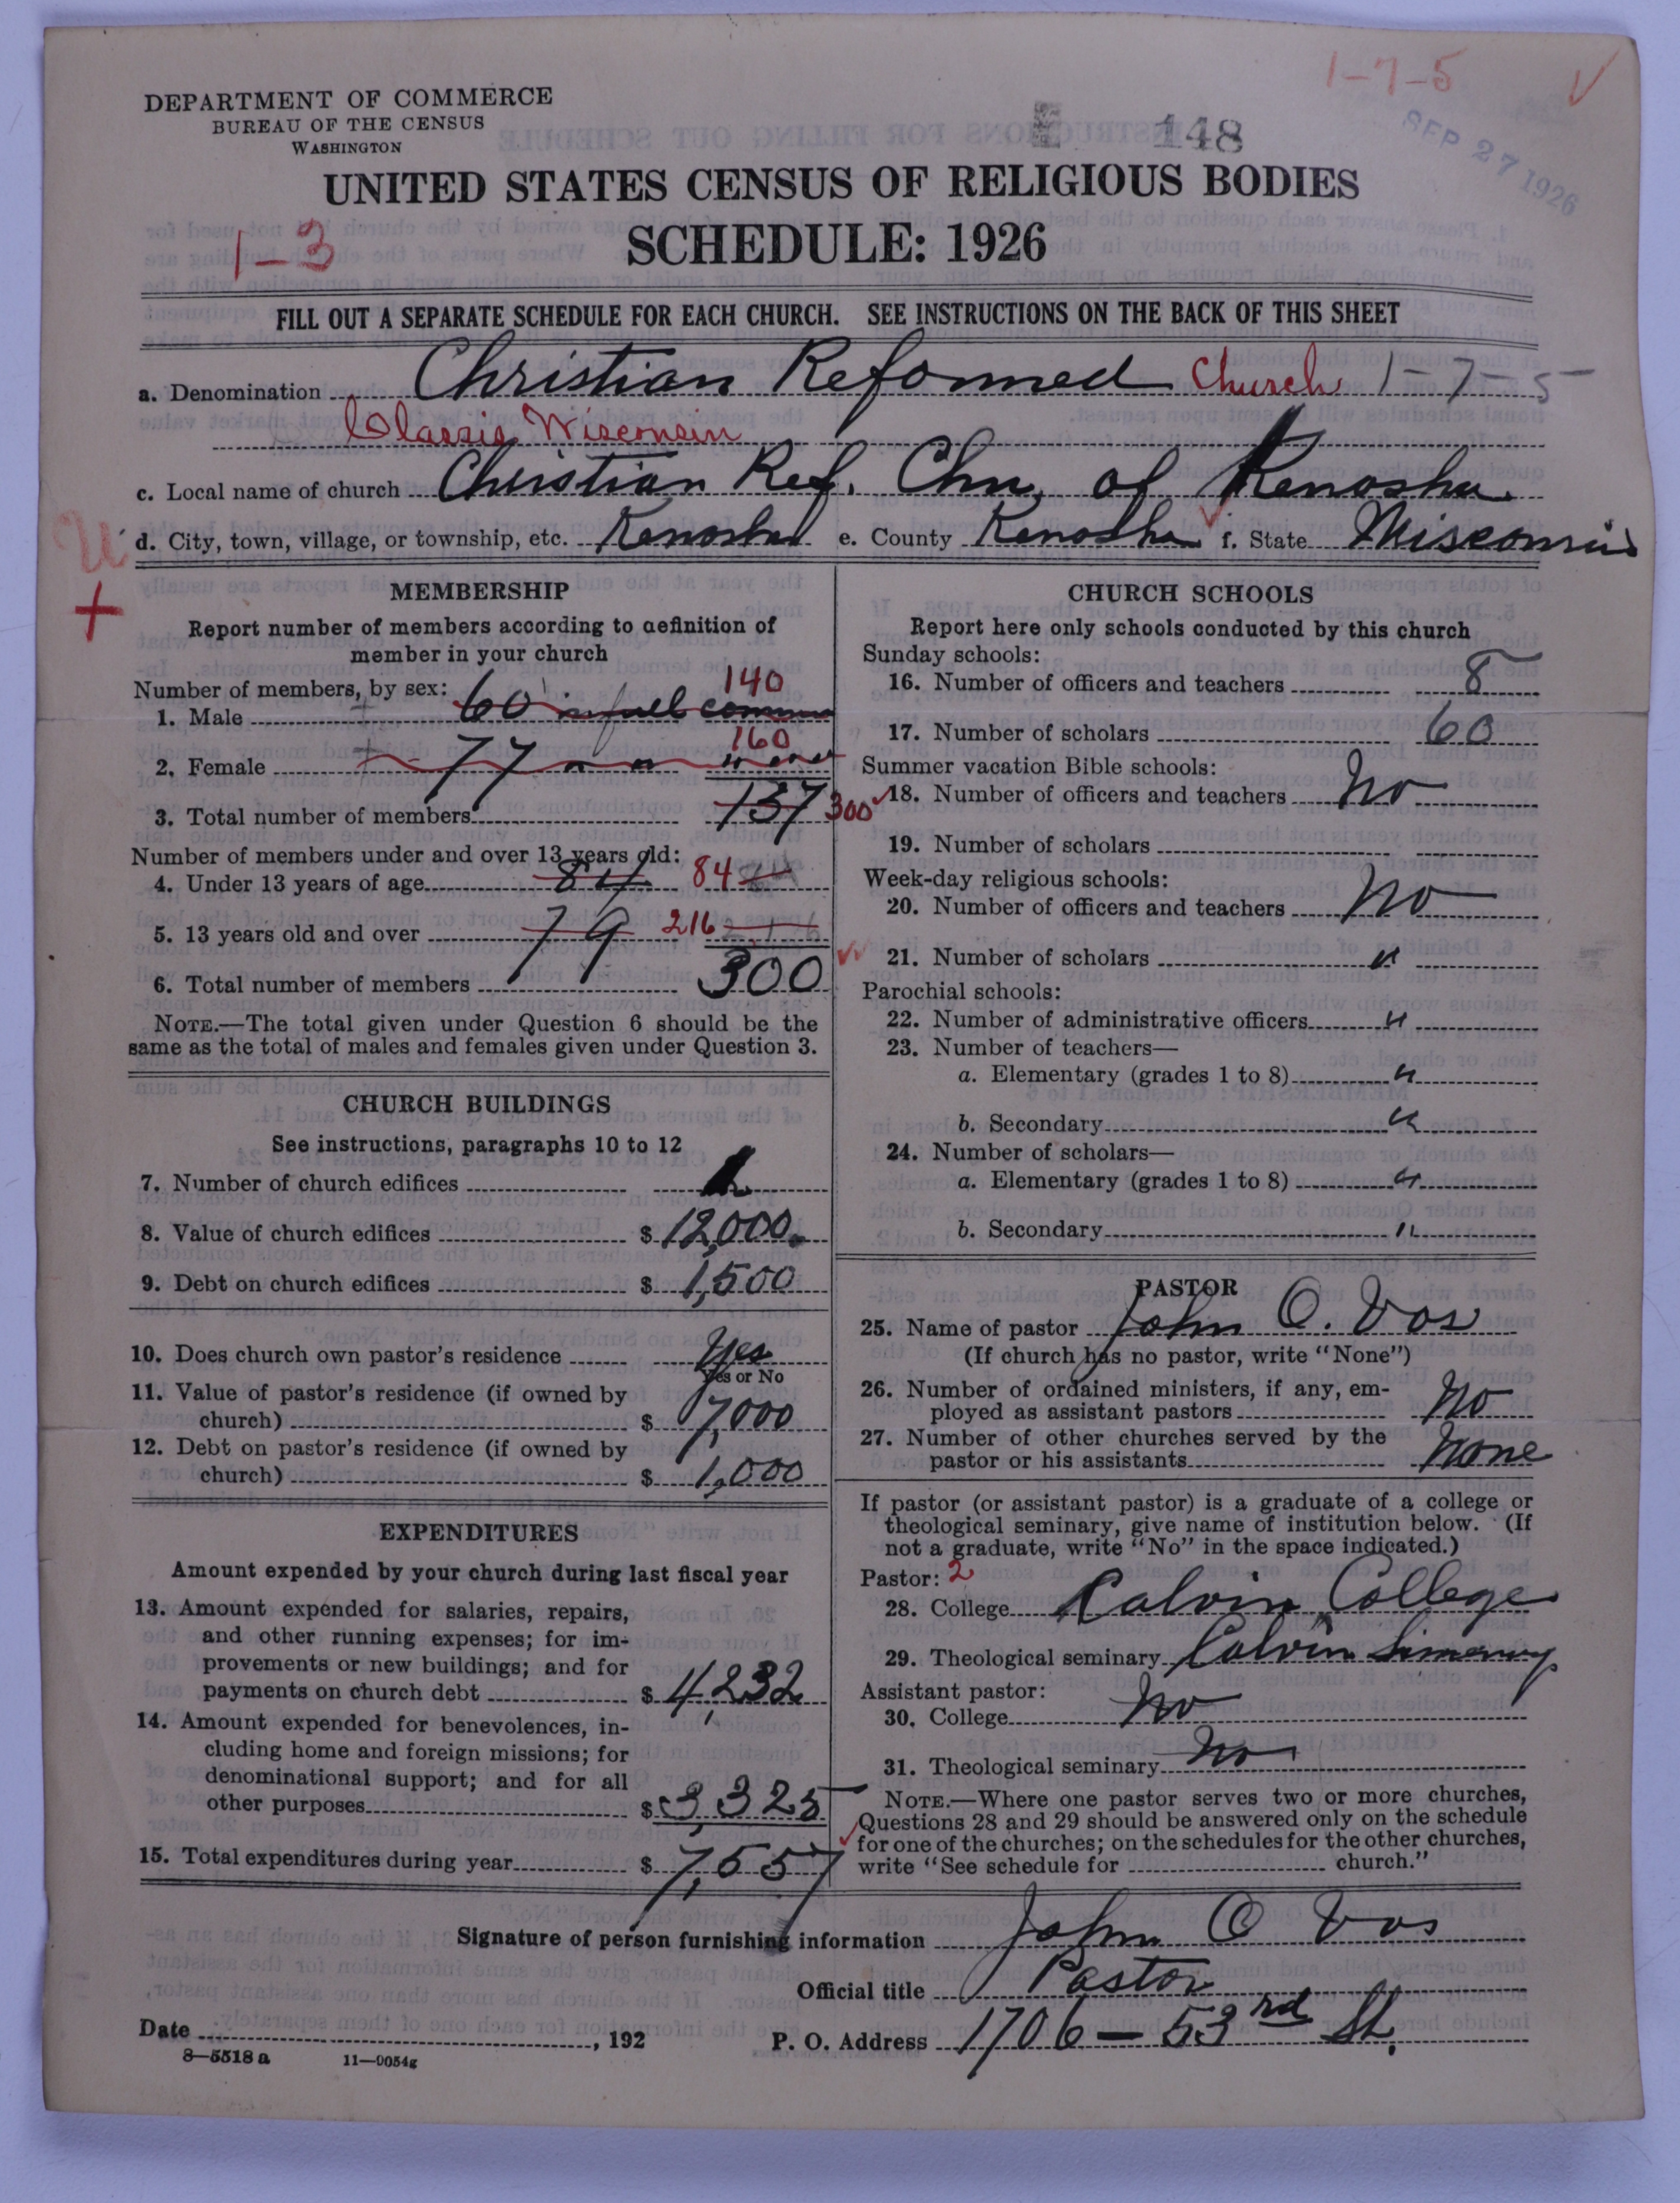 1-7-5
DEPARTMENT OF COMMERCE
BUREAU OF THE CENSUS
WASHINGTON
148
SEP 27 1926
UNITED STATES CENSUS OF RELIGIOUS BODIES
1-3
SCHEDULE: 1926
FILL OUT A SEPARATE SCHEDULE FOR EACH CHURCH. SEE INSTRUCTIONS ON THE BACK OF THIS SHEET
a. Denomination Christian Reformed Church 1-7-5
Classis Wisconsin
c. Local name of church Christian Ref. Chu. of Kenosha.
d. City, town, village, or township, etc. Kenosha e. County Kenosha f. State Wisconsin
MEMBERSHIP
Report number of members according to definition of
member in your church
Number of members, by sex: 140
1. Male 60 in full commu
160
2. Female 77 " "
3. Total number of members 137 300
Number of members under and over 13 years old:
4. Under 13 years of age 84 84 84
5. 13 years old and over 79 216 216
6. Total number of members 300
NOTE.—The total given under Question 6 should be the
same as the total of males and females given under Question 3.
CHURCH BUILDINGS
See instructions, paragraphs 10 to 12
7. Number of church edifices 1
8. Value of church edifices $ 12,000.
9. Debt on church edifices $ 1,500
10. Does church own pastor's residence Yes
Yes or No
11. Value of pastor's residence (if owned by
church) $ 7,000
12. Debt on pastor's residence (if owned by
church) $ 1,000
EXPENDITURES
Amount expended by your church during last fiscal year
13. Amount expended for salaries, repairs,
and other running expenses; for im-
provements or new buildings; and for
payments on church debt $ 4,232
14. Amount expended for benevolences, in-
cluding home and foreign missions; for
denominational support; and for all
other purposes $ 3,325
15. Total expenditures during year $ 7,557
CHURCH SCHOOLS
Report here only schools conducted by this church
Sunday schools:
16. Number of officers and teachers 8
17. Number of scholars 60
Summer vacation Bible schools:
18. Number of officers and teachers No
19. Number of scholars
Week-day religious schools:
20. Number of officers and teachers No
21. Number of scholars "
Parochial schools:
22. Number of administrative officers "
23. Number of teachers—
a. Elementary (grades 1 to 8) "
b. Secondary "
24. Number of scholars—
a. Elementary (grades 1 to 8) "
b. Secondary "
PASTOR
25. Name of pastor John O. Vos
(If church has no pastor, write "None")
26. Number of ordained ministers, if any, em-
ployed as assistant pastors No
27. Number of other churches served by the
pastor or his assistants None
If pastor (or assistant pastor) is a graduate of a college or
theological seminary, give name of institution below. (If
not a graduate, write "No" in the space indicated.)
Pastor: 2
28. College Calvin College
29. Theological seminary Calvin
Assistant pastor:
30. College No
31. Theological seminary No
NOTE.—Where one pastor serves two or more churches,
Questions 28 and 29 should be answered only on the schedule
for one of the churches; on the schedules for the other churches,
write "See schedule for church."
Signature of person furnishing information John O Vos
Official title Pastor
Date , 192 P. O. Address 1706 — 53rd St.
8—5518 a 11—9054g